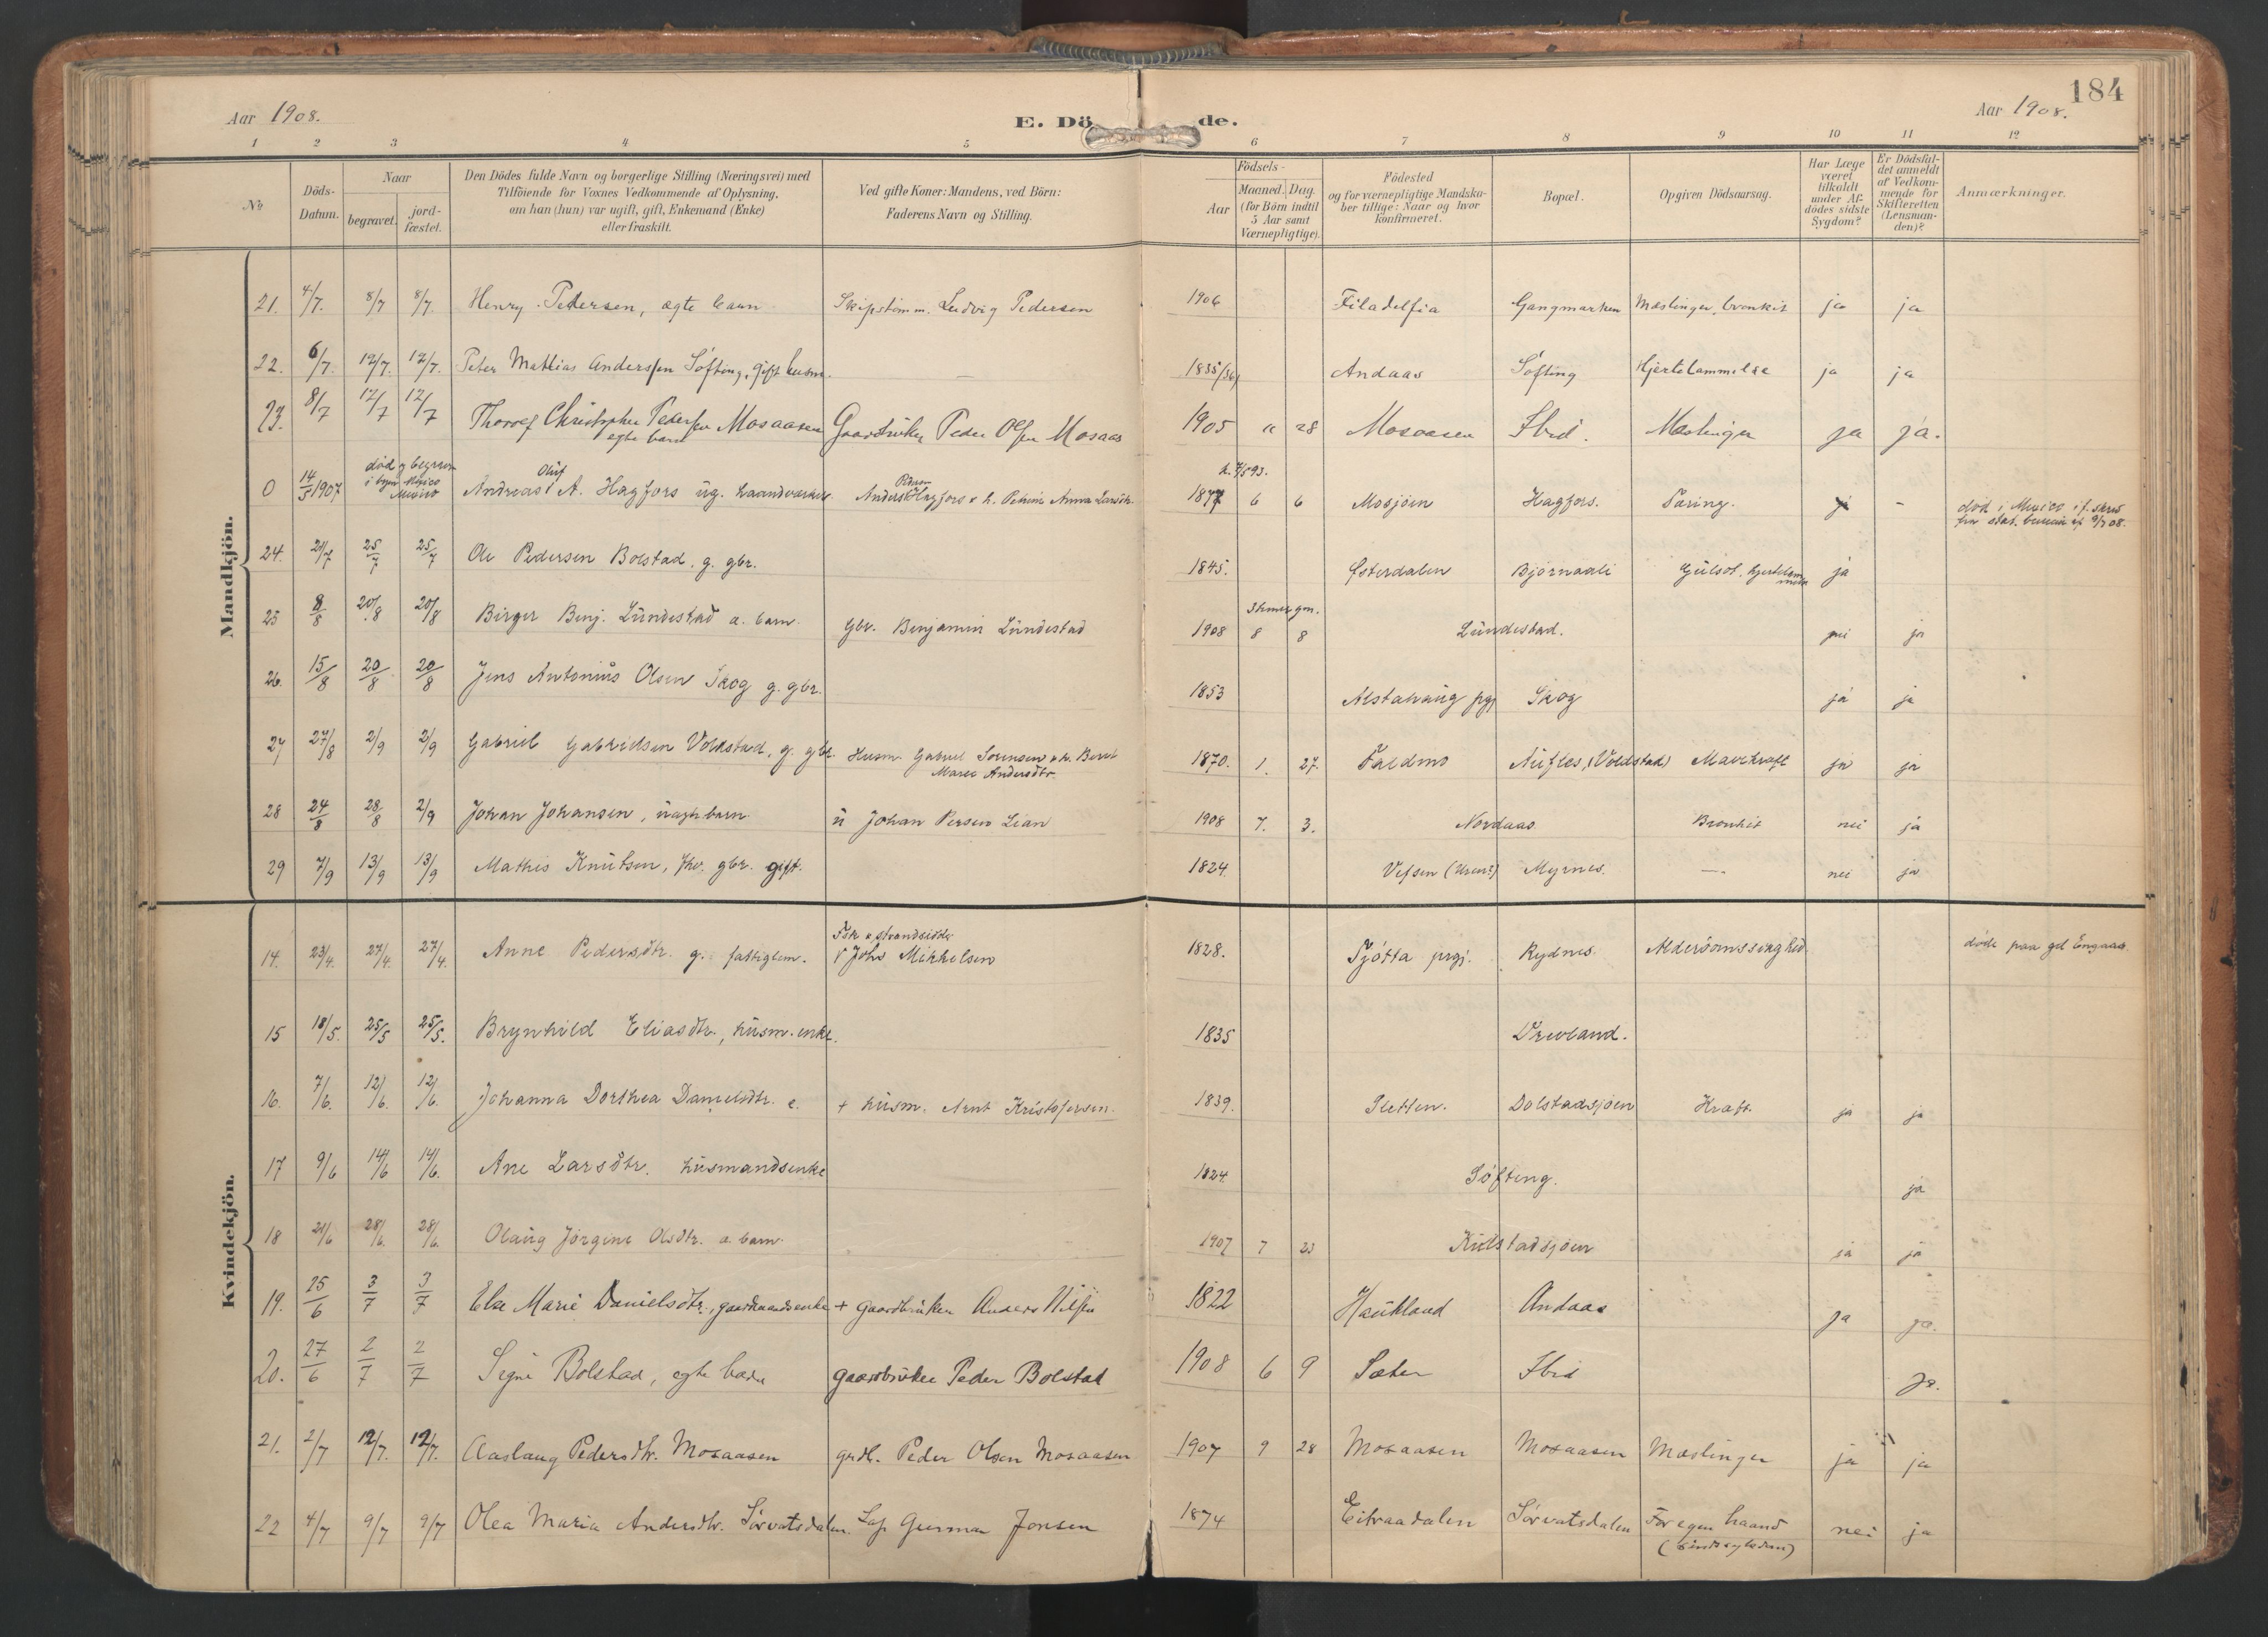 184
Aar 1908.
E. Dö de.
Aar 1908.
1 2 3 4 5 6 7 8 9 10 11 12
No
Döds-Datum.
Naar
begravet.
jord-fæstet.
Den Dödes fulde Navn og borgerlige Stilling (Næringsvei) med
Tilföiende for Voxnes Vedkommende af Oplysning,
om han (hun) var ugift, gift, Enkemand (Enke)
eller fraskilt.
Ved gifte Koner: Mandens, ved Börn:
Faderens Navn og Stilling.
Födsels-
Aar
Maaned. Dag.
(for Börn indtil
5 Aar samt
Værnepligtige).
Födested
og for værnepligtige Mandska-
ber tillige: Naar og hvor
konfirmeret.
Bopæl.
Opgiven Dödsaarsag.
Har Læge
været
tilkaldt
under Af-
dödes sidste
Sygdom?
Er Dödsfal-
det anmeldt
af Vedkom-
mende for
Skifteretten
(Lensman-
den)?
Anmærkninger.
Mandkjön.
21. 4/7. 8/7 8/7. Henry Pedersen, ægte barn Skipstømm. Ludvig Pedersen 1906 Filadelfia Gangmarken Mæslinger, bronkit ja ja
22. 6/7. 12/7. 12/7. Peter Mathias Anderssen Søfting, gift husm. — 1835/36 Andaas Søfting Hjertelammelse ja ja
23. 8/7 12/7 12/7 Thorolf Christopher Pedersen Mosaasen Gaardbruker Peder Olsen Mosaas 1905 11 28 Mosaasen Ibid. Mæslinger ja ja.
egte barn
0 14/5 1907 død og begrav. i byen Mexico Andreas Oluf A. Hagfors ug. haandværker Anders Hagfors h. Petrine Anna Larsdtr. 1877 6 6 Mosjøen Hagfors. Tæring. ja – død i Mexico if. skriv.
24. 21/7 25/7 25/7 Ole Pedersen Bolstad, g. gbr. 1845. Østerdalen Bjørnaali Gulsot, hjertelammelse ja
25 8/8 20/8 20/8 Birger Benj. Lundestad æ. barn. Gbr. Benjamin Lundestad 1908 8 8 Lundestad. nei ja
26. 15/8 20/8 20/8 Jens Antonius Olsen Skog g. gbr. 1853 Alstahaug pgj Skog ja ja
27 27/8 2/9 2/9 Gabriel Gabrielsen Voldstad, g. gbr. Husm. Gabriel Sørensen h. Berit 1870. 1. 27. Faldmo Aufles, (Voldstad) Mavekræft ja ja
Marie Andersdtr.
28 24/8 28/8 2/9 Johan Johansen, uægte barn. u Johan Persen Lian 1908 7. 3. Nordaas Bronkit nei ja
29 7/9 13/9 13/9 Mathis Knutsen, fhv. gbr. gift. 1824. Vefsen Myrnes. — nei ja
Kvindekjön.
14. 23/4. 27/4. 27/4. Anne Pedersdtr. g. fattiglem. Johs Mikkelsen 1828. Tjøtta prgj. Rydnes. Alderdomssvaghed. døde paa gd Engaas
15 18/5. 25/5 25/5. Brynhild Eliasdtr., husm. enke. 1835 Drevland.
16. 7/6. 12/6. 12/6. Johanna Dorthea Danielsdtr. e. + husm. Arnt Kristofersen. 1839. Sletten. Dolstadsjøen Kræft. ja ja
17 9/6 14/6 14/6. Ane Larsdtr. husmandsenke 1824. Søfting. ja
18 21/6 28/6. 28/6. Olaug Jørgine Olsdtr. æ. barn. 1907 7 23 Kulstadsjøen ja ja
19. 25/6 3/7 3/7 Else Marie Danielsdtr., gaardmandsenke + gaardbruker Anders Nilsen 1822 Haukland Andaas ja ja.
20. 27/6 2/7 2/7 Signe Bolstad, egte barn gaardbruker Peder Bolstad 1908 6 9 Sæter Ibid ja.
21. 2/7 12/7. 12/7. Aaslaug Pedersdtr. Mosaasen grdb. Peder Olsen Mosaasen 1907 9 28 Mosaasen Mosaasen Mæslinger ja ja
22 4/7 9/7 9/7 Olea Maria Andersdtr. Sørvatsdalen. Lap Gunnar Jonsen 1874 Eitraadalen Sørvatsdalen For egen haand nei ja
(sindssygdom)